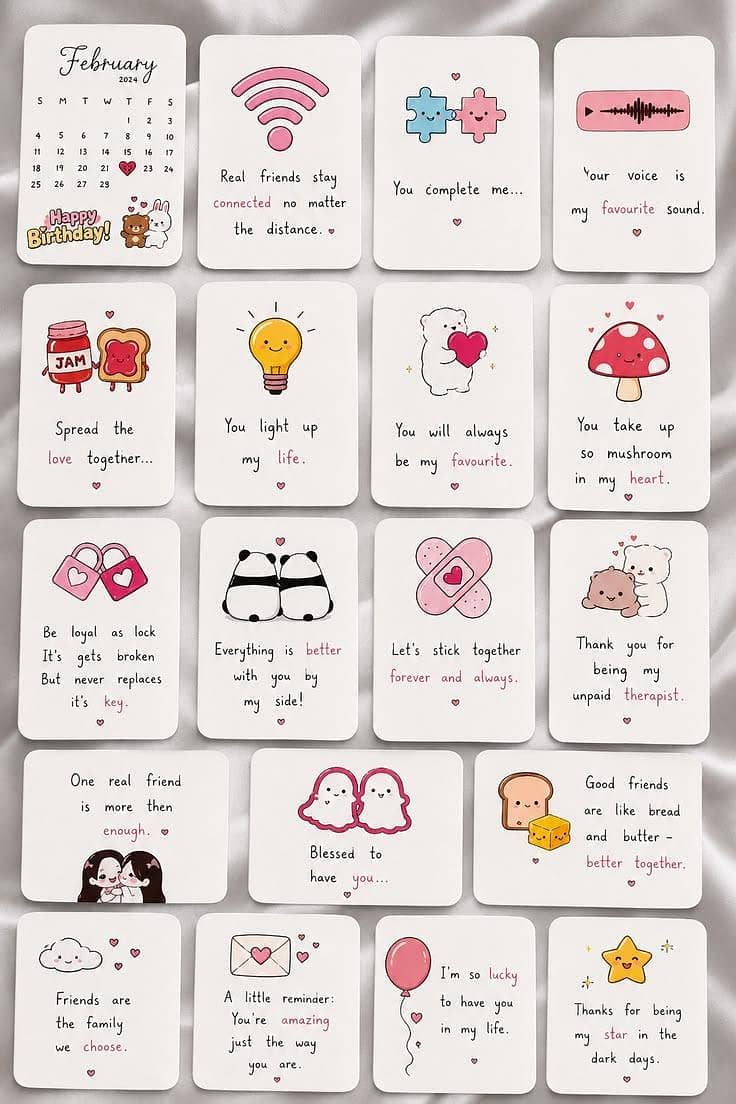 February
2024
S M T W T F S
1 2 3
4 5 6 7 8 9 10
11 12 13 14 15 16 17
18 19 20 21 23 24
25 26 27 28
Happy
Birthday!
Real friends stay
connected no matter
the distance.
You complete me...
Your voice is
my favourite sound.
JAM
Spread the
love together...
You light up
my life.
You will always
be my favourite.
You take up
so mushroom
in my heart.
Be loyal as lock
It's gets broken
But never replaces
it's key.
Everything is better
with you by
my side!
Let's stick together
forever and always.
Thank you for
being my
unpaid therapist.
One real friend
is more then
enough.
Blessed to
have you...
Good friends
are like bread
and butter –
better together.
Friends are
the family
we choose.
A little reminder:
You're amazing
just the way
you are.
I'm so lucky
to have you
in my life.
Thanks for being
my star in the
dark days.